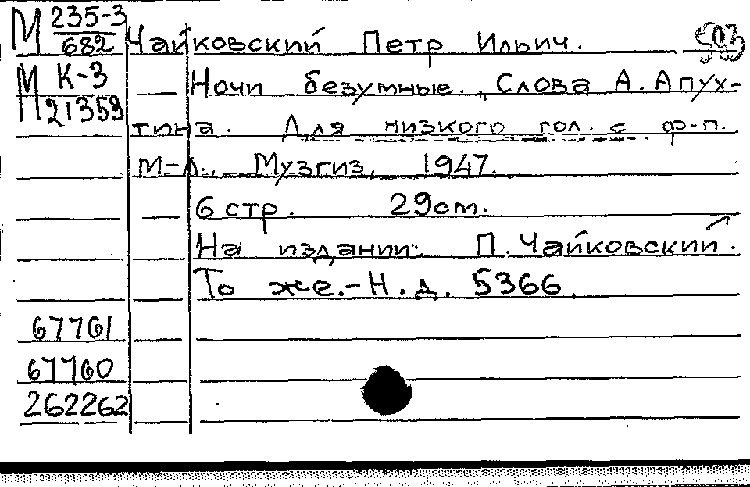 М 235-3
682 Чайковский Петр Ильич. 503
М К-3 Ночи безумные. Слова А. Апух-
П 21353 тина. Для низкого гол. с ф-п.
М-Л., Музгиз, 1947.
6 стр. 29см.
На издании: П. Чайковский.
То же.-Н.д. 5366.
67761
67760
262262